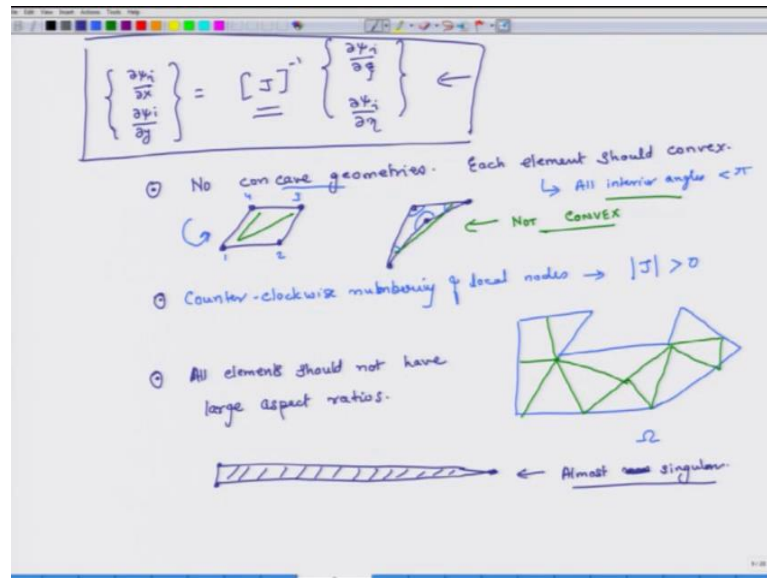 File Edit View Insert Actions Tools Help
{ ∂ψi/∂x ∂ψi/∂y } = [J]⁻¹ { ∂ψi/∂ξ ∂ψi/∂η } ←
⊙ No concave geometries. Each element should convex.
↳ All interior angles < π
4 3
1 2
← NOT CONVEX
⊙ Counter-clockwise numbering of local nodes → |J| > 0
⊙ All elements should not have
large aspect ratios.
Ω
← Almost singular.